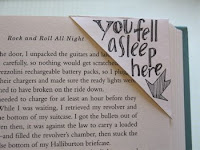 Rock and Roll All Night
you fell
asleep
here
the door, I unpacked the guitars and
carefully, so nothing would get scratched
rechargeable battery packs, so I
their chargers and made sure the ready lights were
to have broken on the ride down.
needed to charge for at least an hour before they
While I was waiting, I retrieved my revolver and
the bottom of my suitcase. I got the bullets out of
even then, it was against the law to carry a loaded
and filled the revolver's chamber, then stuck the
bottom of my Halliburton briefcase.